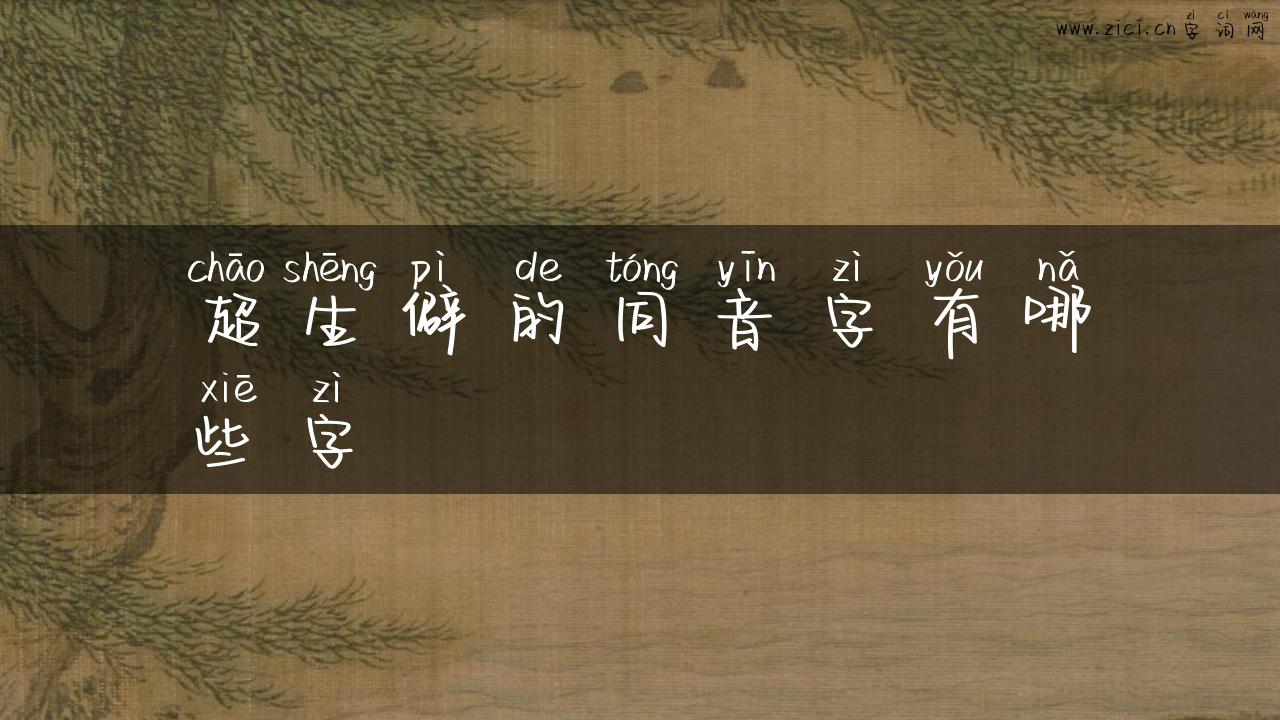 zì cí wǎng
www.zici.cn 字词网
chāo shēng pì de tóng yīn zì yǒu nǎ
超生僻的同音字有哪
xiē zì
些字